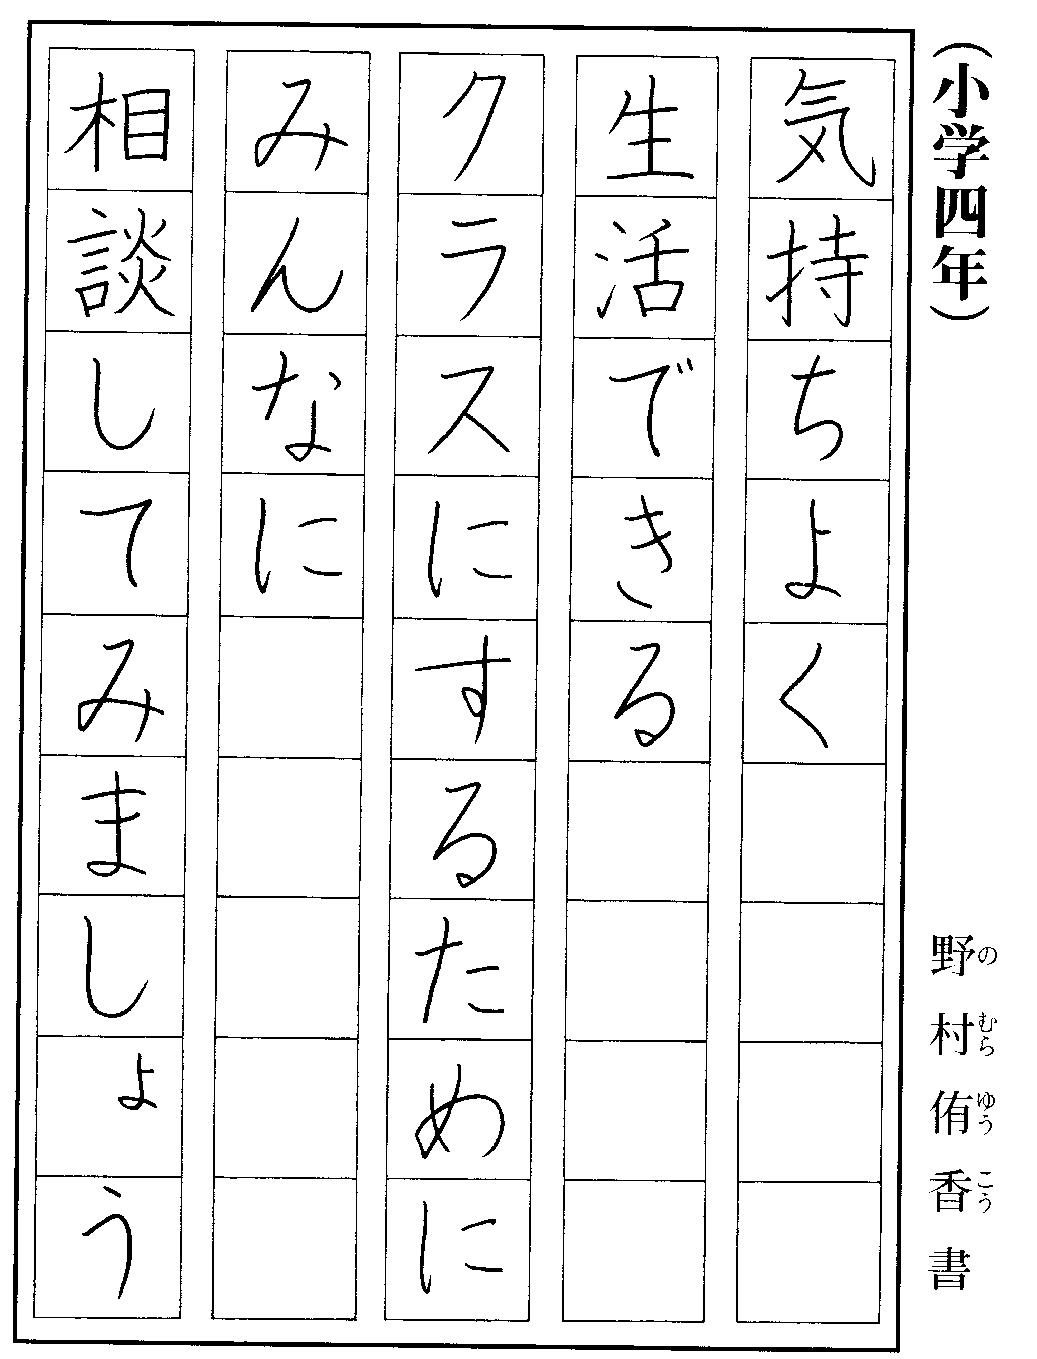 （小学四年）
野村侑香書
のむらゆうこう
気持ちよく
生活できる
クラスにするために
みんなに
相談してみましょう